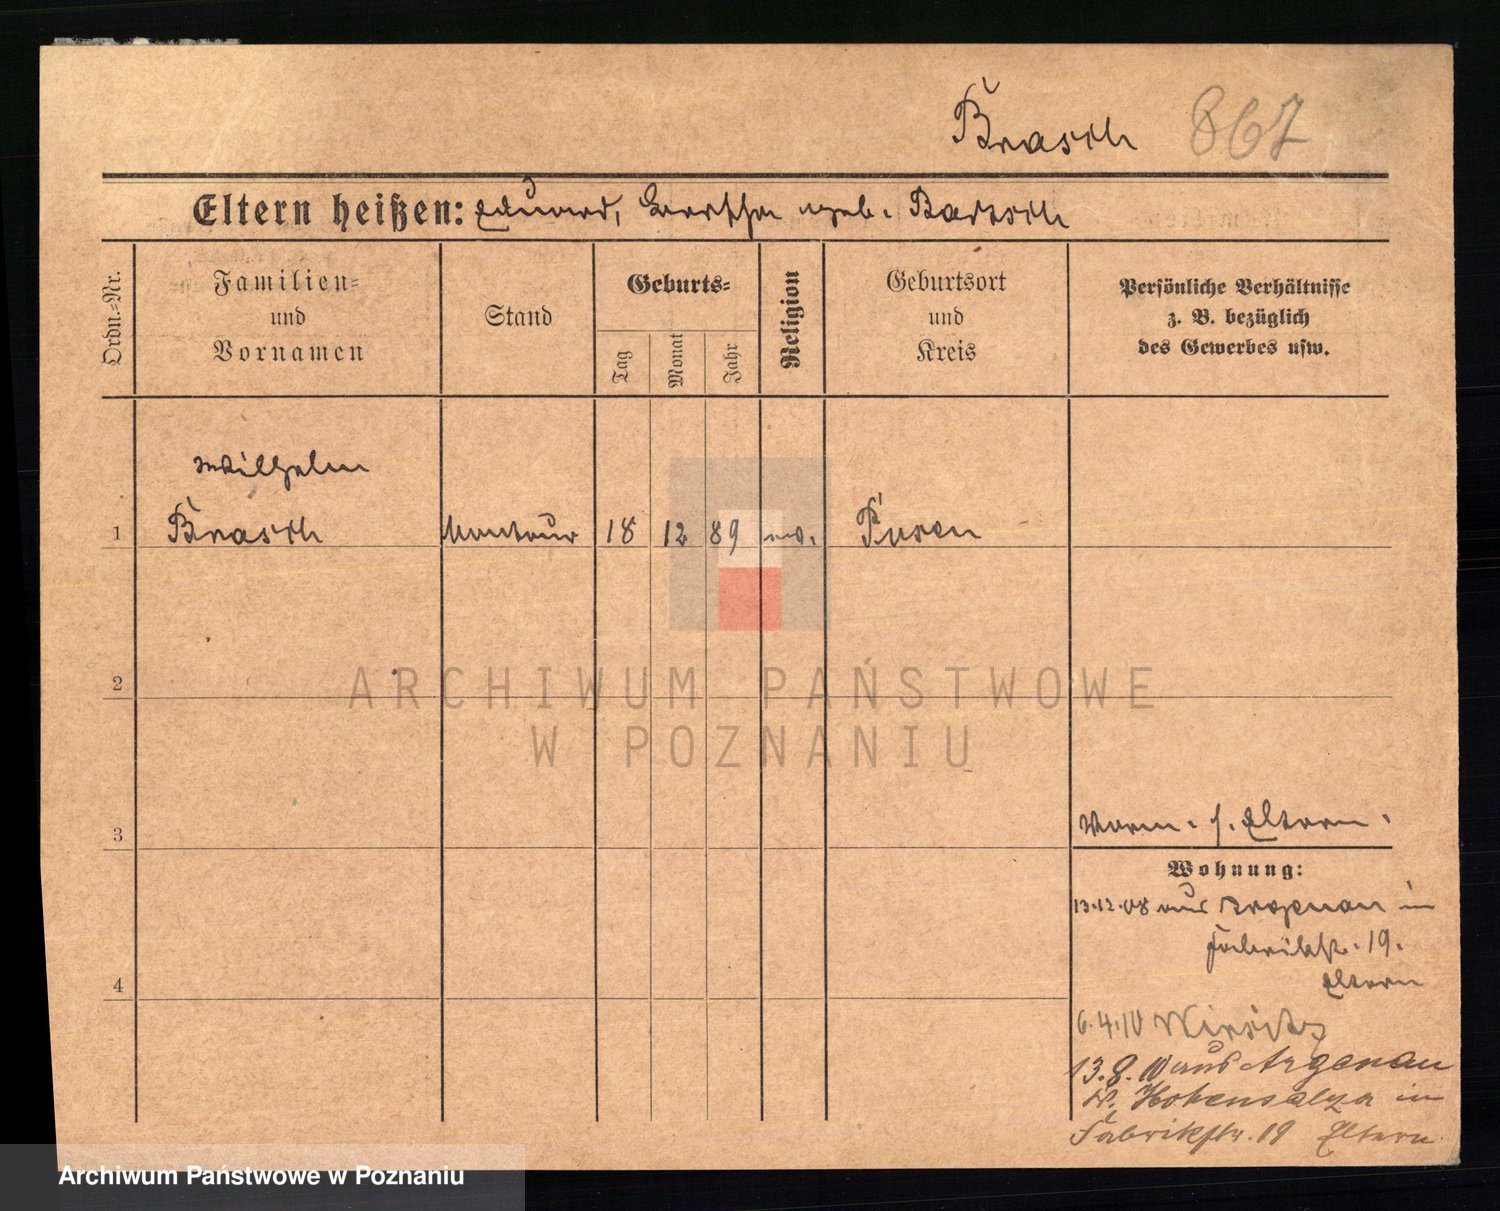 Brasch 867
Eltern heißen: Eduard, Bertha geb. Bartsch
Ordn.-Nr.
Familien-
und
Vornamen
Stand
Geburts-
Tag
Monat
Jahr
Religion
Geburtsort
und
Kreis
Persönliche Verhältnisse
z. B. bezüglich
des Gewerbes usw.
Wilhelm
1 Brasch Monteur 18 12 89 ev. Posen
2
ARCHIWUM PAŃSTWOWE
W POZNANIU
3
Vorm. s. Eltern.
Wohnung:
13.12.08 aus in
Fabrikstr. 19.
4
Eltern
6.4.10 Wirsitz
13.8.10 aus Argenau
Kr. Hohensalza in
Fabrikstr. 19 Eltern.
Archiwum Państwowe w Poznaniu